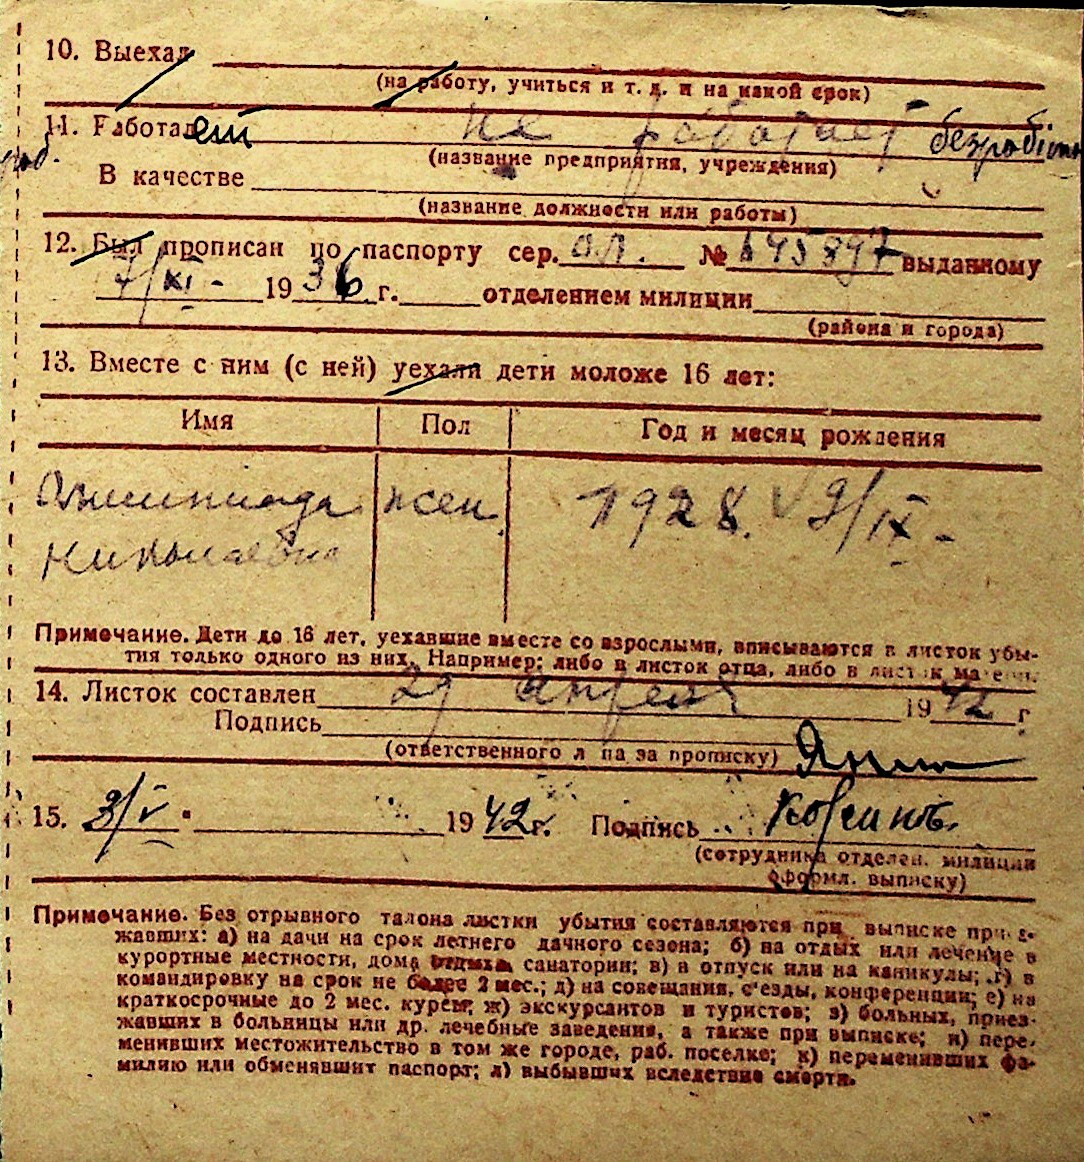 10. Выехал
(на работу, учиться и т. д. и на какой срок)
11. Работает не работает безробітн
(название предприятия, учреждения)
В качестве
(название должности или работы)
12. Был прописан по паспорту сер. О.Л. № 645897 выданному
7/XI - 1936 г. отделением милиции
(района и города)
13. Вместе с ним (с ней) уехали дети моложе 16 лет:
Имя Пол Год и месяц рождения
Олимпиада жен. 1928. 9/IX -
Николаевна
Примечание. Дети до 16 лет, уехавшие вместе со взрослыми, вписываются в листок убы-
тия только одного из них. Например: либо в листок отца, либо в листок матери.
14. Листок составлен 29 апреля 1942 г
Подпись
(ответственного лица за прописку)
15. 3/V 1942 г. Подпись
(сотрудника отделен. милиции
оформл. выписку)
Примечание. Без отрывного талона листки убытия составляются при выписке приез-
жавших: а) на дачи на срок летнего дачного сезона; б) на отдых или лечение в
курортные местности, дома отдыха, санатории; в) в отпуск или на каникулы; г) в
командировку на срок не более 2 мес.; д) на совещания, с'езды, конференции; е) на
краткосрочные до 2 мес. курсы; ж) экскурсантов и туристов; з) больных, приез-
жавших в больницы или др. лечебные заведения, а также при выписке; и) пере-
менивших местожительство в том же городе, раб. поселке; к) переменивших фа-
милию или обменявших паспорт; л) выбывших вследствие смерти.